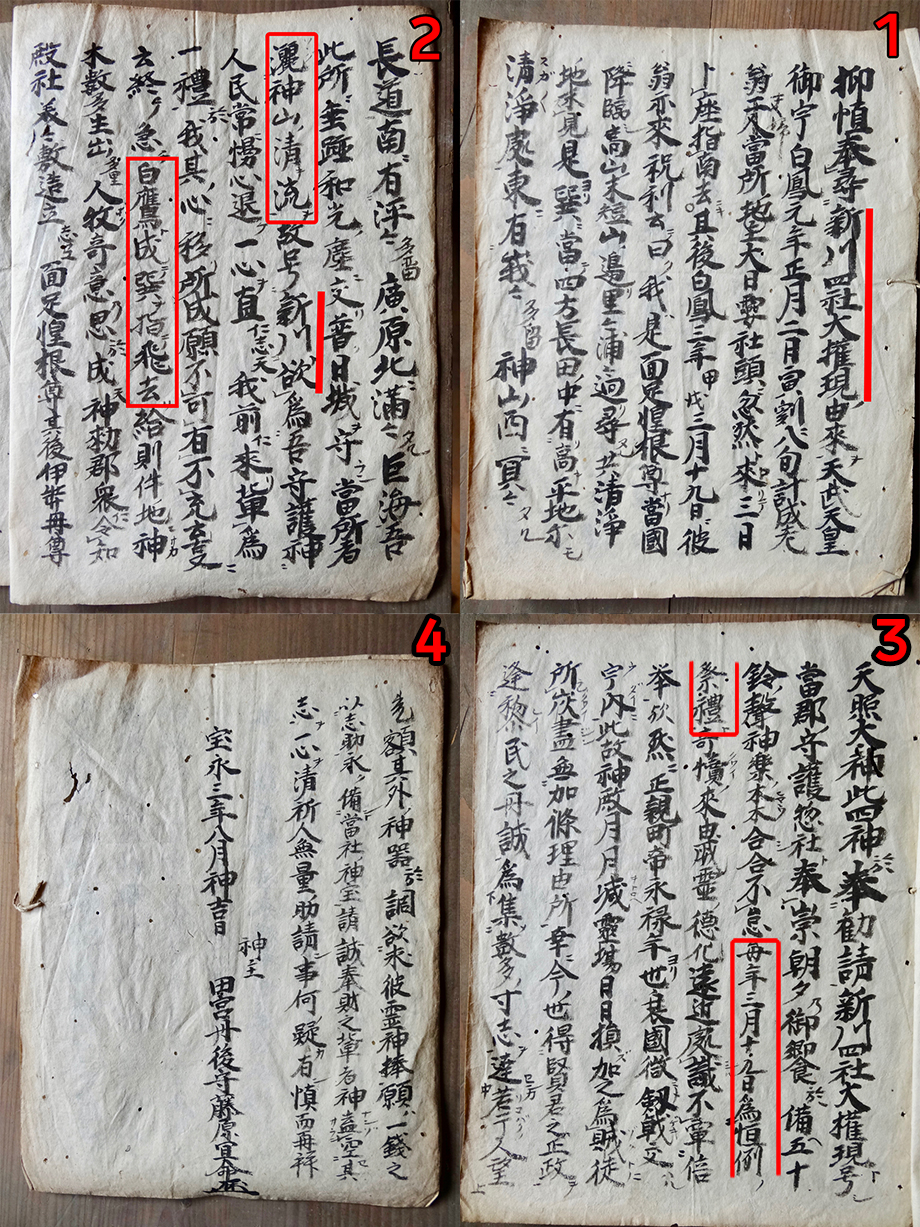 1
抑慎奉尋新川四社大権現由来天武天皇
御宇白鳳元年正月二月寅剋八旬計成老
翁一天當所地主大日霊社頭忽然来三日
卜座指南去且後白鳳三年甲戌三月十九日彼
翁亦来祝利去曰我是面足惶根尊當國
降臨高山末短山邉里浦廻尋共清浄
地未見是巽當四方長田中有高平地尓モ
清浄處東有峩ミ多留神山西頁ミタル
2
長道南有浮ミ多留廣原北満ミタル巨海吾
此所垂跡和光塵文普日城守當所者
灑神山清流故号新川欲為吾守護神
人民常愓心退一心直仁志天我前来輩為
一禮我其心移所成願不可有不充妻
去終急白鷹成巽指飛去給則件地神
木数多生出人牧奇意思成神勅郡衆令如
殿社義敷造立志天面足惶根尊其後伊弉冊尊
3
天照大神此四神奉勧請新川四社大権現号
當郡守護惣社奉崇朝夕御御食於備五十
鈴聲神樂本末合合不怠毎年三月十九日為恒例
祭禮可憤来由厥霊德化遠近處識不軍倍
挙欤然正親町帝永禄年世衰國微剱戟交
宇内此故神殿月月減霊場日日損加之為賊徒
所災盡無加條理由所幸今世得賢君之正政
逢黎民之丹誠為集数多寸志達若干人望
4
是額其外神器於調欲求彼霊神捧願一錢之
以志助永備當社神宝請誠奉財之輩者神蓋空其
志一心清祈人無量助請事何疑有慎而再祥
宝永三年八月神吉日
神主
田宮丹後守藤原